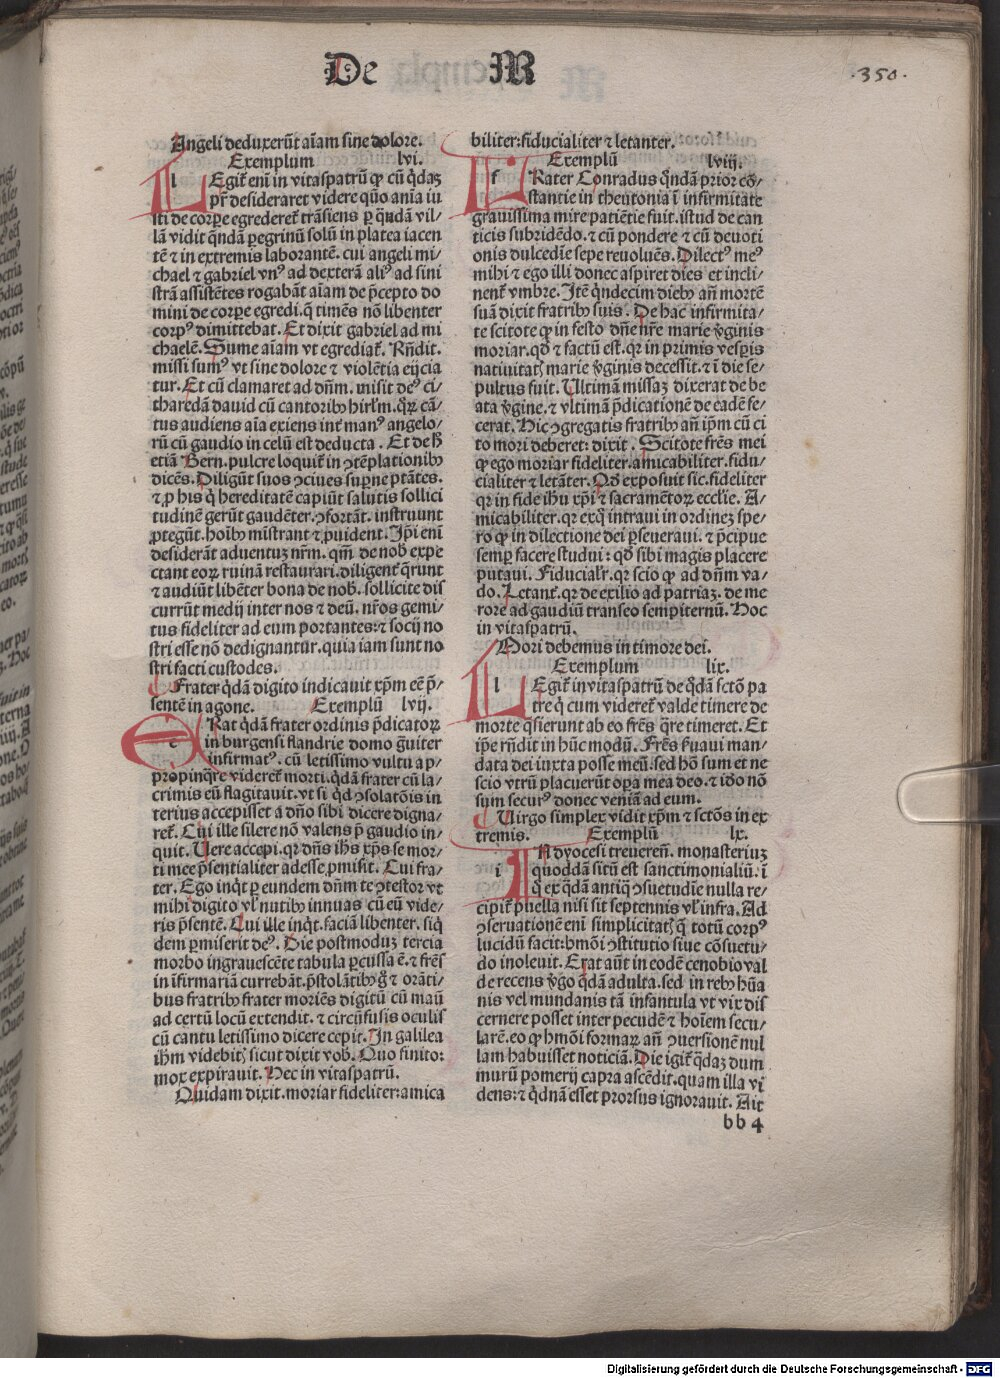 De M
·350·
Angeli deduxerūt aīam sine dolore.
Exemplum lvi.
l Egit̃ enī in vitaspatrū ꝙ cū q̄daʒ
pr̄ desideraret videre quō anīa iu
sti de corpe egrederet̃ trāsiens ꝑ quādā vil⸗
lā vidit quēdā ꝑegrinū solū in platea iacen
tē ⁊ in extremis laborantē. cui angeli mi⸗
chael ⁊ gabriel vnꝰ ad dexterā aliꝰ ad sini
strā assistētes rogabāt aīam de p̄cepto do
mini de corpe egredi. q̄ timēs nō libenter
corpꝰ dimittebat. Et dixit gabriel ad mi
chaelē. Sume aīam vt egrediat̃. Rn̄dit.
missi sumꝰ vt sine dolore ⁊ violētia eijcia
tur. Et cū clamaret ad dn̄m. misit deꝰ ci⸗
tharedā dauid cū cantoribꝫ hirlm̄. quoꝝ cā⸗
tus audiens aīa exiens int̃ manꝰ angelo⸗
rū cū gaudio in celū est deducta. Et de h̄
etiā Bern. pulcre loquit̃ in ↄtēplationibꝫ
dicēs. Diligūt suos ↄciues supne ptātes.
⁊ ꝓ his q̄ hereditatē capiūt salutis sollici
tudinē gerūt gaudēter. ↄfortāt. instruunt
ꝓtegūt. hoībꝫ mistrant ⁊ ꝓuident. Ip̄i enī
desiderāt aduentuʒ nr̄m. qm̄ de nob̄ expe
ctant eoꝝ ruinā restaurari. diligent̃ q̄runt
⁊ audiūt libēter bona de nob̄. sollicite dis
currūt medij inter nos ⁊ deū. nr̄os gemi⸗
tus fideliter ad eum portantes: ⁊ socij no
stri esse nō dedignantur. quia iam sunt no
stri facti custodes.
Frater q̄dā digito indicauit xp̄m eē p̄⸗
sentē in agone. Exemplū lvij.
e Rat q̄dā frater ordinis p̄dicatoꝝ
in burgensi flandrie domo g̃uiter
infirmatꝰ. cū letissimo vultu a p⸗
propinq̄re videret̃ morti. q̄dā frater cū la⸗
crimis eū flagitauit. vt si q̄d ↄsolatōis in
terius accepisset a dn̄o sibi dicere digna⸗
ret̃. Cui ille silere nō valens p̄ gaudio in⸗
quit. Uere accepi. qꝛ dn̄s ih̄s xp̄s se mor⸗
ti mee p̄sentialiter adesse ꝓmisit. Cui fra⸗
ter. Ego inq̄t ꝑ eundem dn̄m te ↄtestor vt
mihi digito vl̓ nutibꝫ innuas cū eū vide⸗
ris p̄sentē. Cui ille inq̄t. faciā libenter. siq̄
dem ꝑmiserit deꝰ. Die postmoduʒ tercia
morbo ingrauescēte tabula ꝑcussa ē. ⁊ fr̄es
in īfirmariā currebāt. p̄stolātibꝫ g̃ ⁊ orāti⸗
bus fratribꝫ frater moriēs digitū cū manū
ad certū locū extendit. ⁊ circūfusis oculis
cū cantu letissimo dicere cepit. In galilea
ih̄m videbitꝭ sicut dixit vob̄. Quo finito:
mox expirauit. Hec in vitaspatrū.
Quidam dixit. moriar fideliter: amica
biliter: fiducialiter ⁊ letanter.
Exemplū lviij.
f Rater Conradus quōdā prior cō⸗
stantie in theutonia ī infirmitate
grauissima mire patiētie fuit. istud de can
ticis subridēdo. ⁊ cū pondere ⁊ cū deuoti
onis dulcedīe sepe reuoluēs. Dilectꝰ meꝰ
mihi ⁊ ego illi donec aspiret dies et incli⸗
nent̃ vmbre. Itē q̄ndecim diebꝫ an̄ mortē
suā dixit fratribꝫ suis. De hac infirmita⸗
te scitote ꝙ in festo dn̄e nr̄e marie v̓ginis
moriar. qd̓ ⁊ factū est. qꝛ in primis vesꝑis
natiuitatꝭ marie v̓ginis decessit. ⁊ ī die se⸗
pultus fuit. Ultimā missaʒ dixerat de be
ata v̓gine. ⁊ vltimā p̄dicationē de eadē fe⸗
cerat. Hic ↄgregatis fratribꝫ an̄ ip̄m cū ci
to mori deberet: dixit. Scitote fr̄es mei
ꝙ ego moriar fideliter. amicabiliter. fidu⸗
cialiter ⁊ letāter. Qd̓ exposuit sic. fideliter
qꝛ in fide ih̄u xp̄i ⁊ sacramētoꝝ eccl̓ie. A⸗
micabiliter. qꝛ exq̄ intraui in ordineʒ spe⸗
ro ꝙ in dilectione dei ꝑseueraui. ⁊ p̄cipue
semꝑ facere studui: qd̓ sibi magis placere
putaui. Fiducialr̓. qꝛ scio ꝙ ad dn̄m va⸗
do. Letant̃. qꝛ de exilio ad patriaʒ. de me
rore ad gaudiū transeo sempiternū. Hoc
in vitaspatrū.
Mori debemus in timore dei.
Exemplum lix.
l Egit̃ in vitaspatrū de q̄dā sctō pa
tre q̄ cum videret̃ valde timere de
morte q̄sierunt ab eo fr̄es q̄re timeret. Et
ip̄e rn̄dit in hūc modū. Fr̄es ẜuaui man⸗
data dei iuxta posse meū. sed hō sum et ne
scio vtrū placuerūt opa mea deo. ⁊ iđo nō
sum securꝰ donec veniā ad eum.
Uirgo simplex vidit xp̄m ⁊ sctōs in ex
tremis. Exemplū lx.
i N dyocesi treueren̄. monasteriuʒ
quoddā sitū est sanctimonialiū. ī
q̄ ex q̄dā antiq̄ ↄsuetudīe nulla re⸗
cipit̃ puella nisi sit septennis vl̓ infra. Ad
ↄseruationē enī simplicitatꝭ q̄ totū corpꝰ
lucidū facit: hmōi ↄstitutio siue cōsuetu⸗
do inoleuit. Erat aūt in eodē cenobio val
de recens v̓go q̄dā adulta. sed in rebꝫ hūa
nis vel mundanis tā infantula vt vix dis
cernere posset inter pecudē ⁊ hoīem secu⸗
larē. eo ꝙ hmōi formaꝝ an̄ ↄuersionē nul
lam habuisset noticiā. Die igit̃ q̄daʒ dum
murū pomerij capra ascēdit. quam illa vi
dens: ⁊ q̄dnā esset prorsus ignorauit. Ait
bb 4
Digitalisierung gefördert durch die Deutsche Forschungsgemeinschaft - DFG